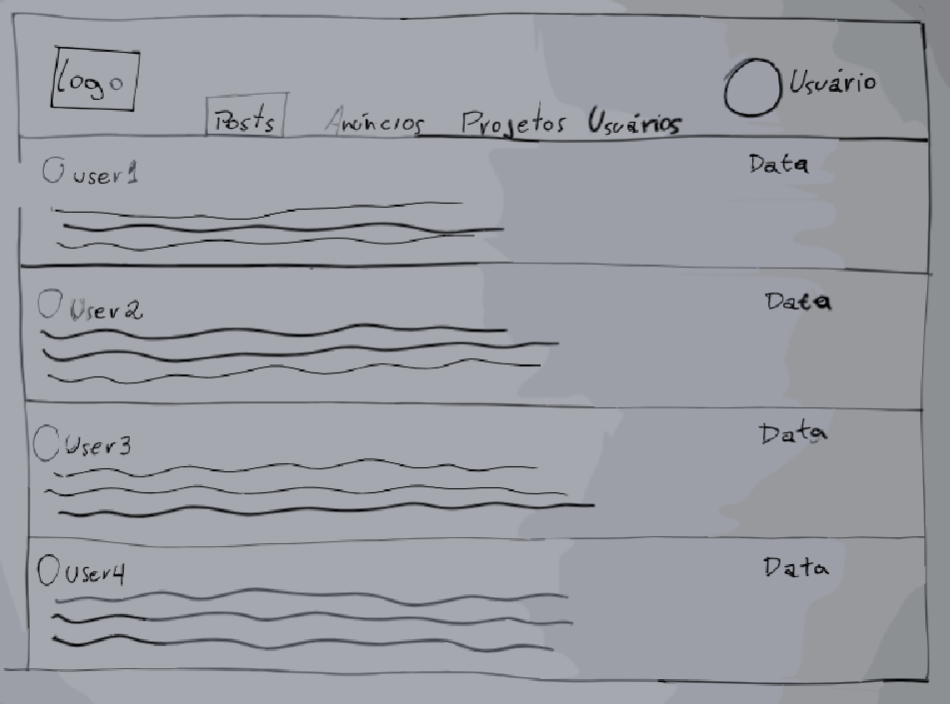 Logo
Usuário
Posts Anúncios Projetos Usuários
user1 Data
User2 Data
User3 Data
User4 Data